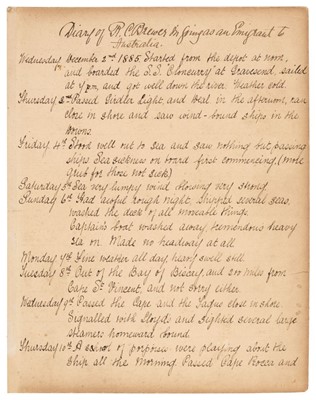 Diary of R. C. Brewer in Going as an Emigrant to
Australia.
Wednesday December 2nd 1885. Started from the depot at noon,
and boarded the S.S. "Cloncurry" at Gravesend, sailed
at 4 p.m. and got well down the river. Weather cold.
Thursday 3rd Passed Girdler Light, and Deal in the afternoon, ran
close in shore and saw wind-bound ships in the
Downs.
Friday 4th Stood well out to sea and saw nothing but passing
ships. Sea sickness on board first commencing, (more
grub for those not sick)
Saturday 5th Sea very lumpy wind blowing very strong
Sunday 6th Had awful rough night, shipped several seas,
washed the decks of all moveable things.
Captain's boat washed away, tremendous heavy
sea on. Made no headway at all.
Monday 7th Fine weather all day, heavy swell still.
Tuesday 8th Out of the Bay of Biscay, and 200 miles from
Cape St Vincent, and not sorry either.
Wednesday 9th Passed the Cape and the Tagus close in shore
Signalled with Lloyds and sighted several large
steamers homeward bound
Thursday 10th A school of porpoises were playing about the
ship all the morning. Passed Cape Rocca and